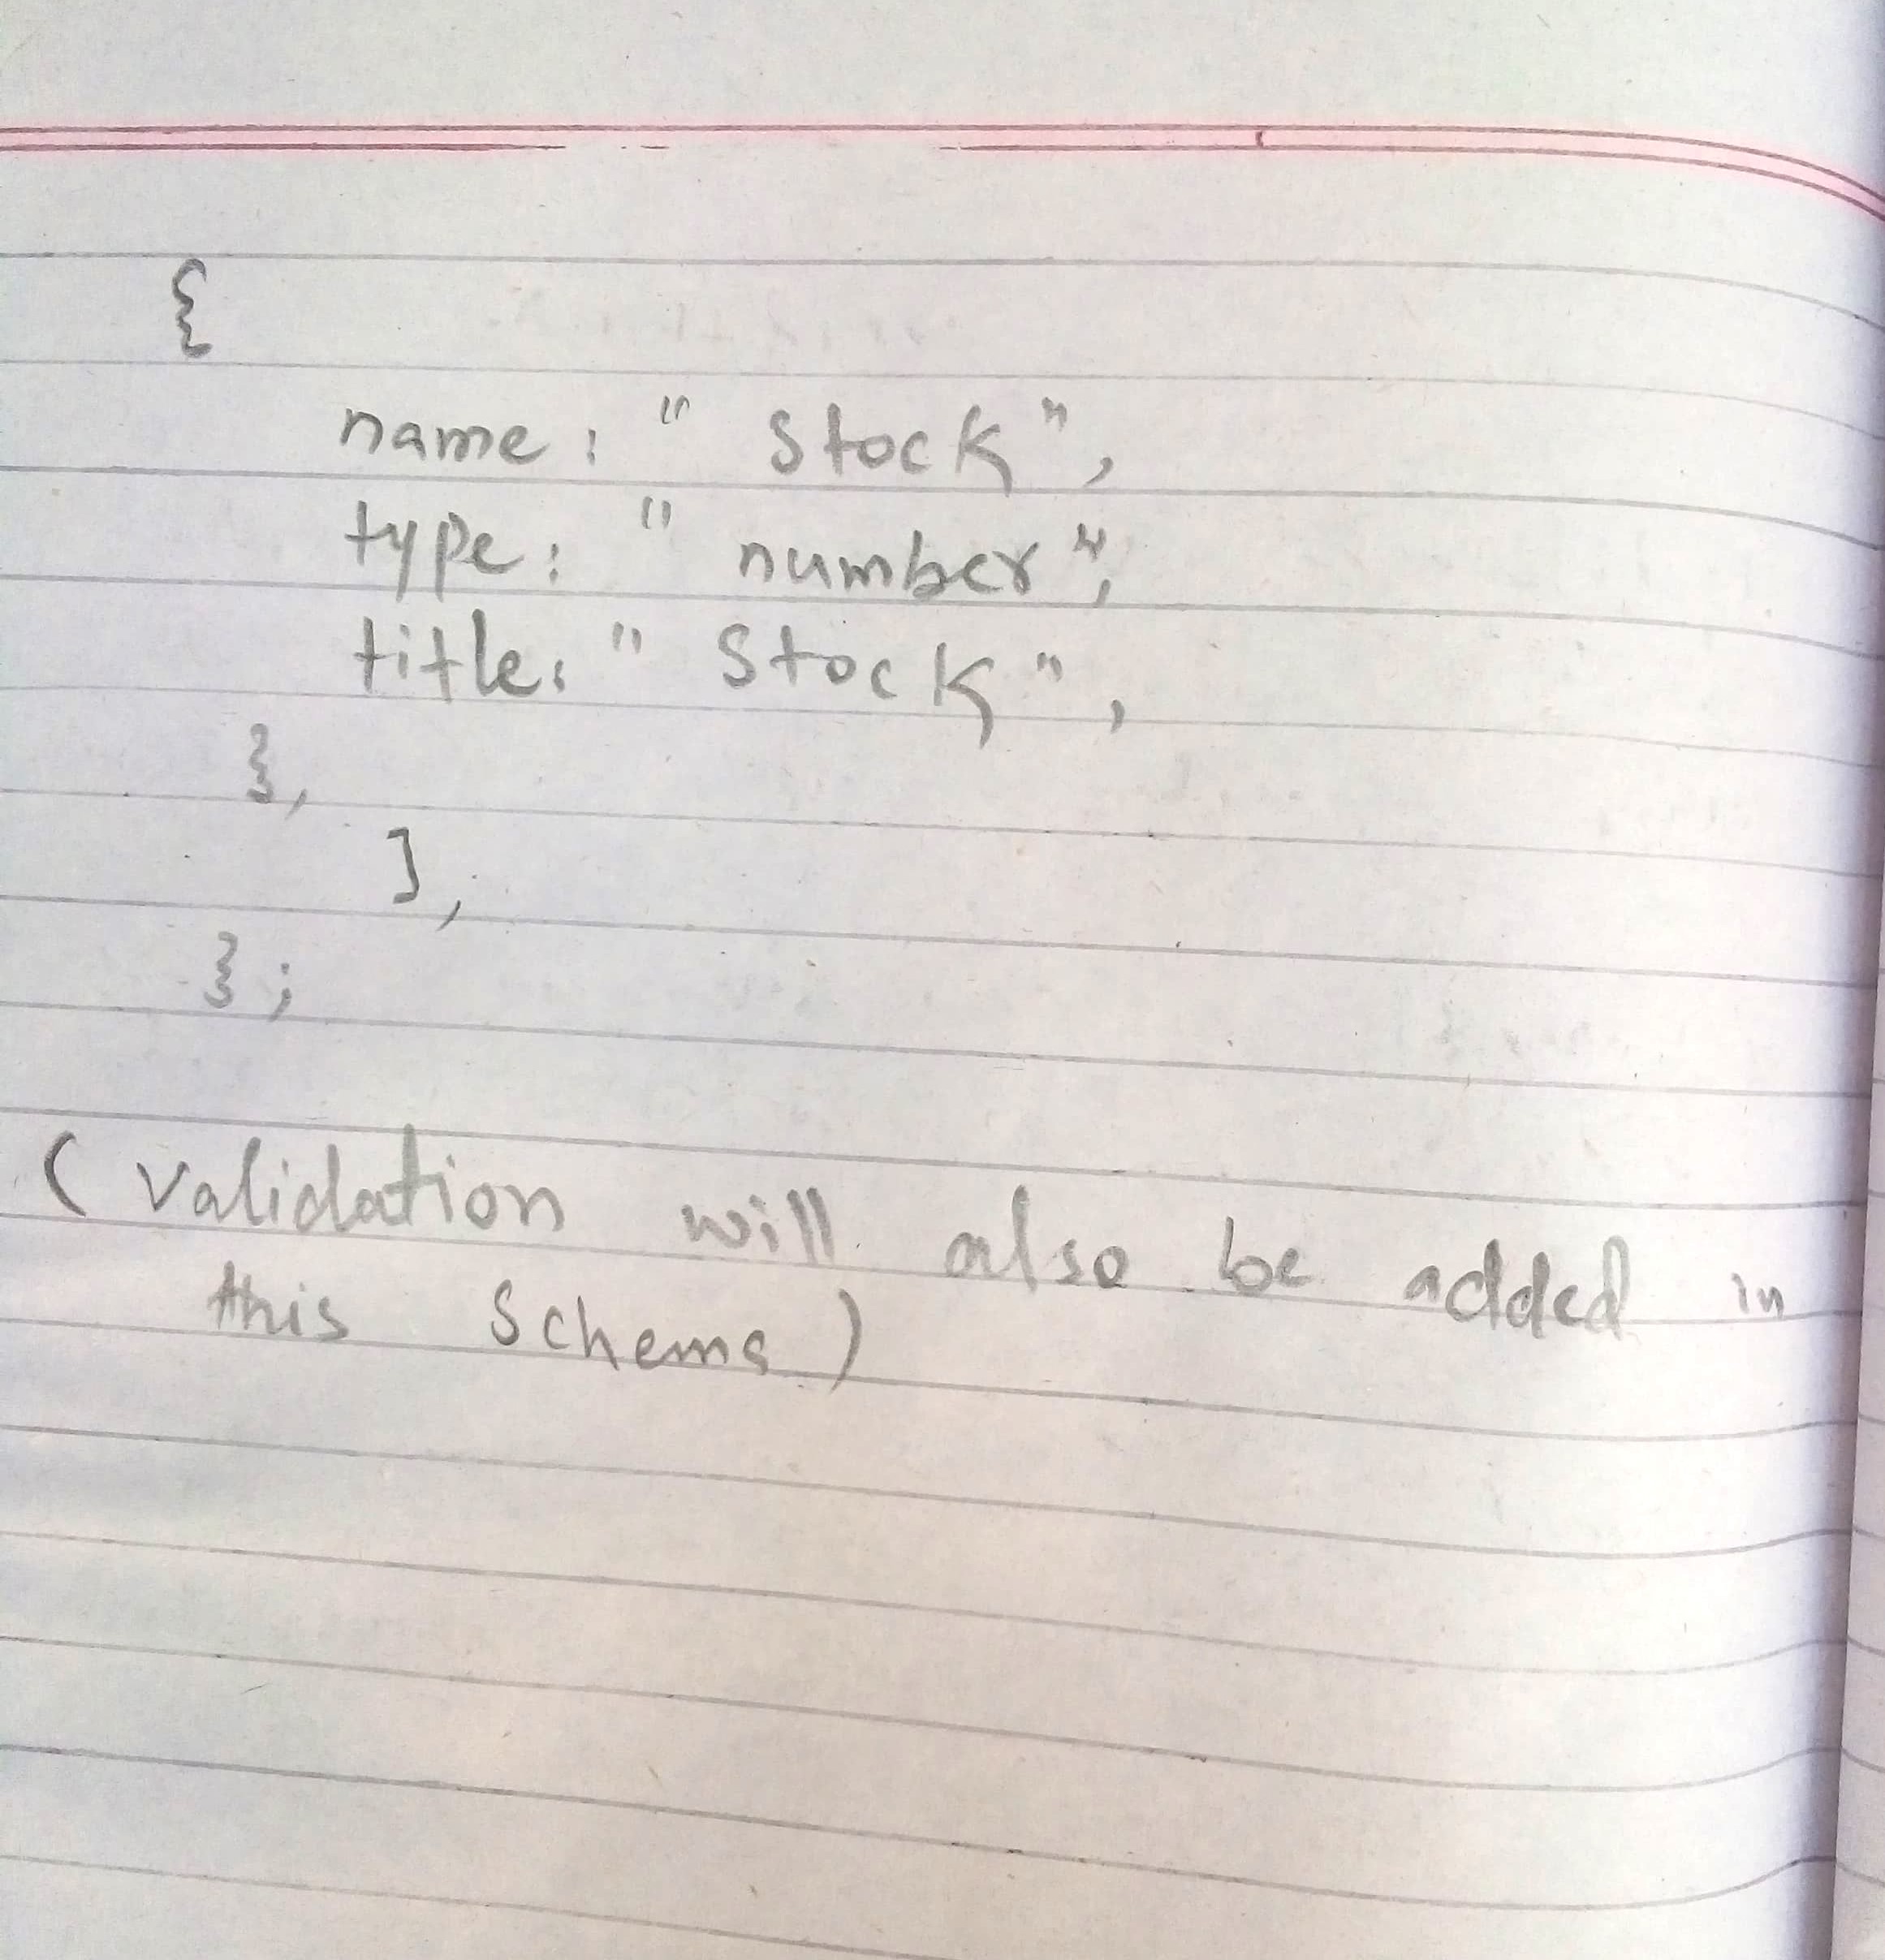 {
name: "stock",
type: "number",
title: "Stock",
},
],
};
(validation will also be added in
this schema)